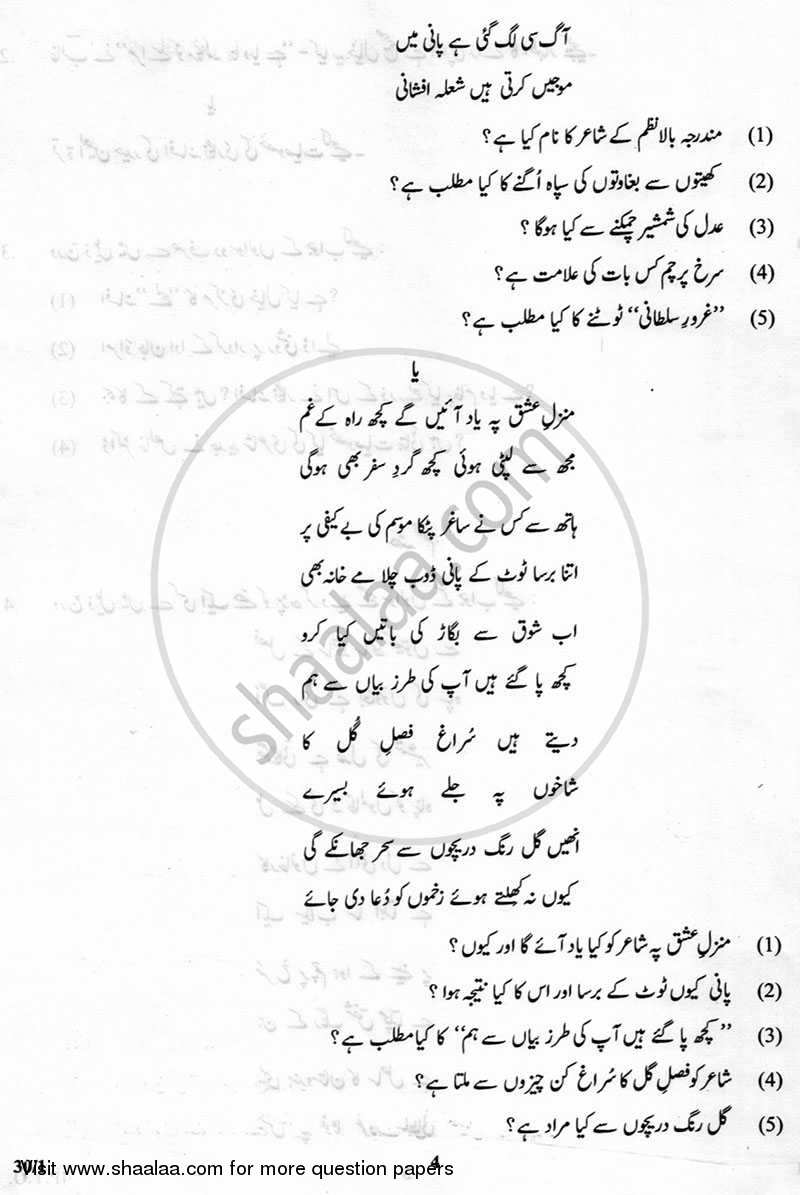 آگ سی لگ گئی ہے پانی میں
موجیں کرتی ہیں شعلہ افشانی
(1) مندرجہ بالا نظم کے شاعر کا نام کیا ہے؟
(2) کھیتوں سے بغاوتوں کی سپاہ اُگنے کا کیا مطلب ہے؟
(3) عدل کی شمشیر چمکنے سے کیا ہوگا ؟
(4) سرخ پرچم کس بات کی علامت ہے؟
(5) ”غرورِ سلطانی“ ٹوٹنے کا کیا مطلب ہے؟
یا
منزلِ عشق پہ یاد آئیں گے کچھ راہ کے غم
مجھ سے لپٹی ہوئی کچھ گردِ سفر بھی ہوگی
ہاتھ سے کس نے ساغر پٹکا موسم کی بے کیفی پر
اتنا برسا ٹوٹ کے پانی ڈوب چلا مے خانہ بھی
اب شوق سے بگاڑ کی باتیں کیا کرو
کچھ پا گئے ہیں آپ کی طرز بیاں سے ہم
دیتے ہیں سُراغ فصلِ گُل کا
شاخوں پہ جلے ہوئے بسیرے
انھیں گل رنگ دریچوں سے سحر جھانکے گی
کیوں نہ کھِلتے ہوئے زخموں کو دُعا دی جائے
(1) منزلِ عشق پہ شاعر کو کیا یاد آئے گا اور کیوں؟
(2) پانی کیوں ٹوٹ کے برسا اور اس کا کیا نتیجہ ہوا ؟
(3) ”کچھ پا گئے ہیں آپ کی طرز بیاں سے ہم“ کا کیا مطلب ہے؟
(4) شاعر کو فصلِ گل کا سُراغ کن چیزوں سے ملتا ہے؟
(5) گل رنگ دریچوں سے کیا مراد ہے؟
30/1 4
Visit www.shaalaa.com for more question papers
shaalaa.com